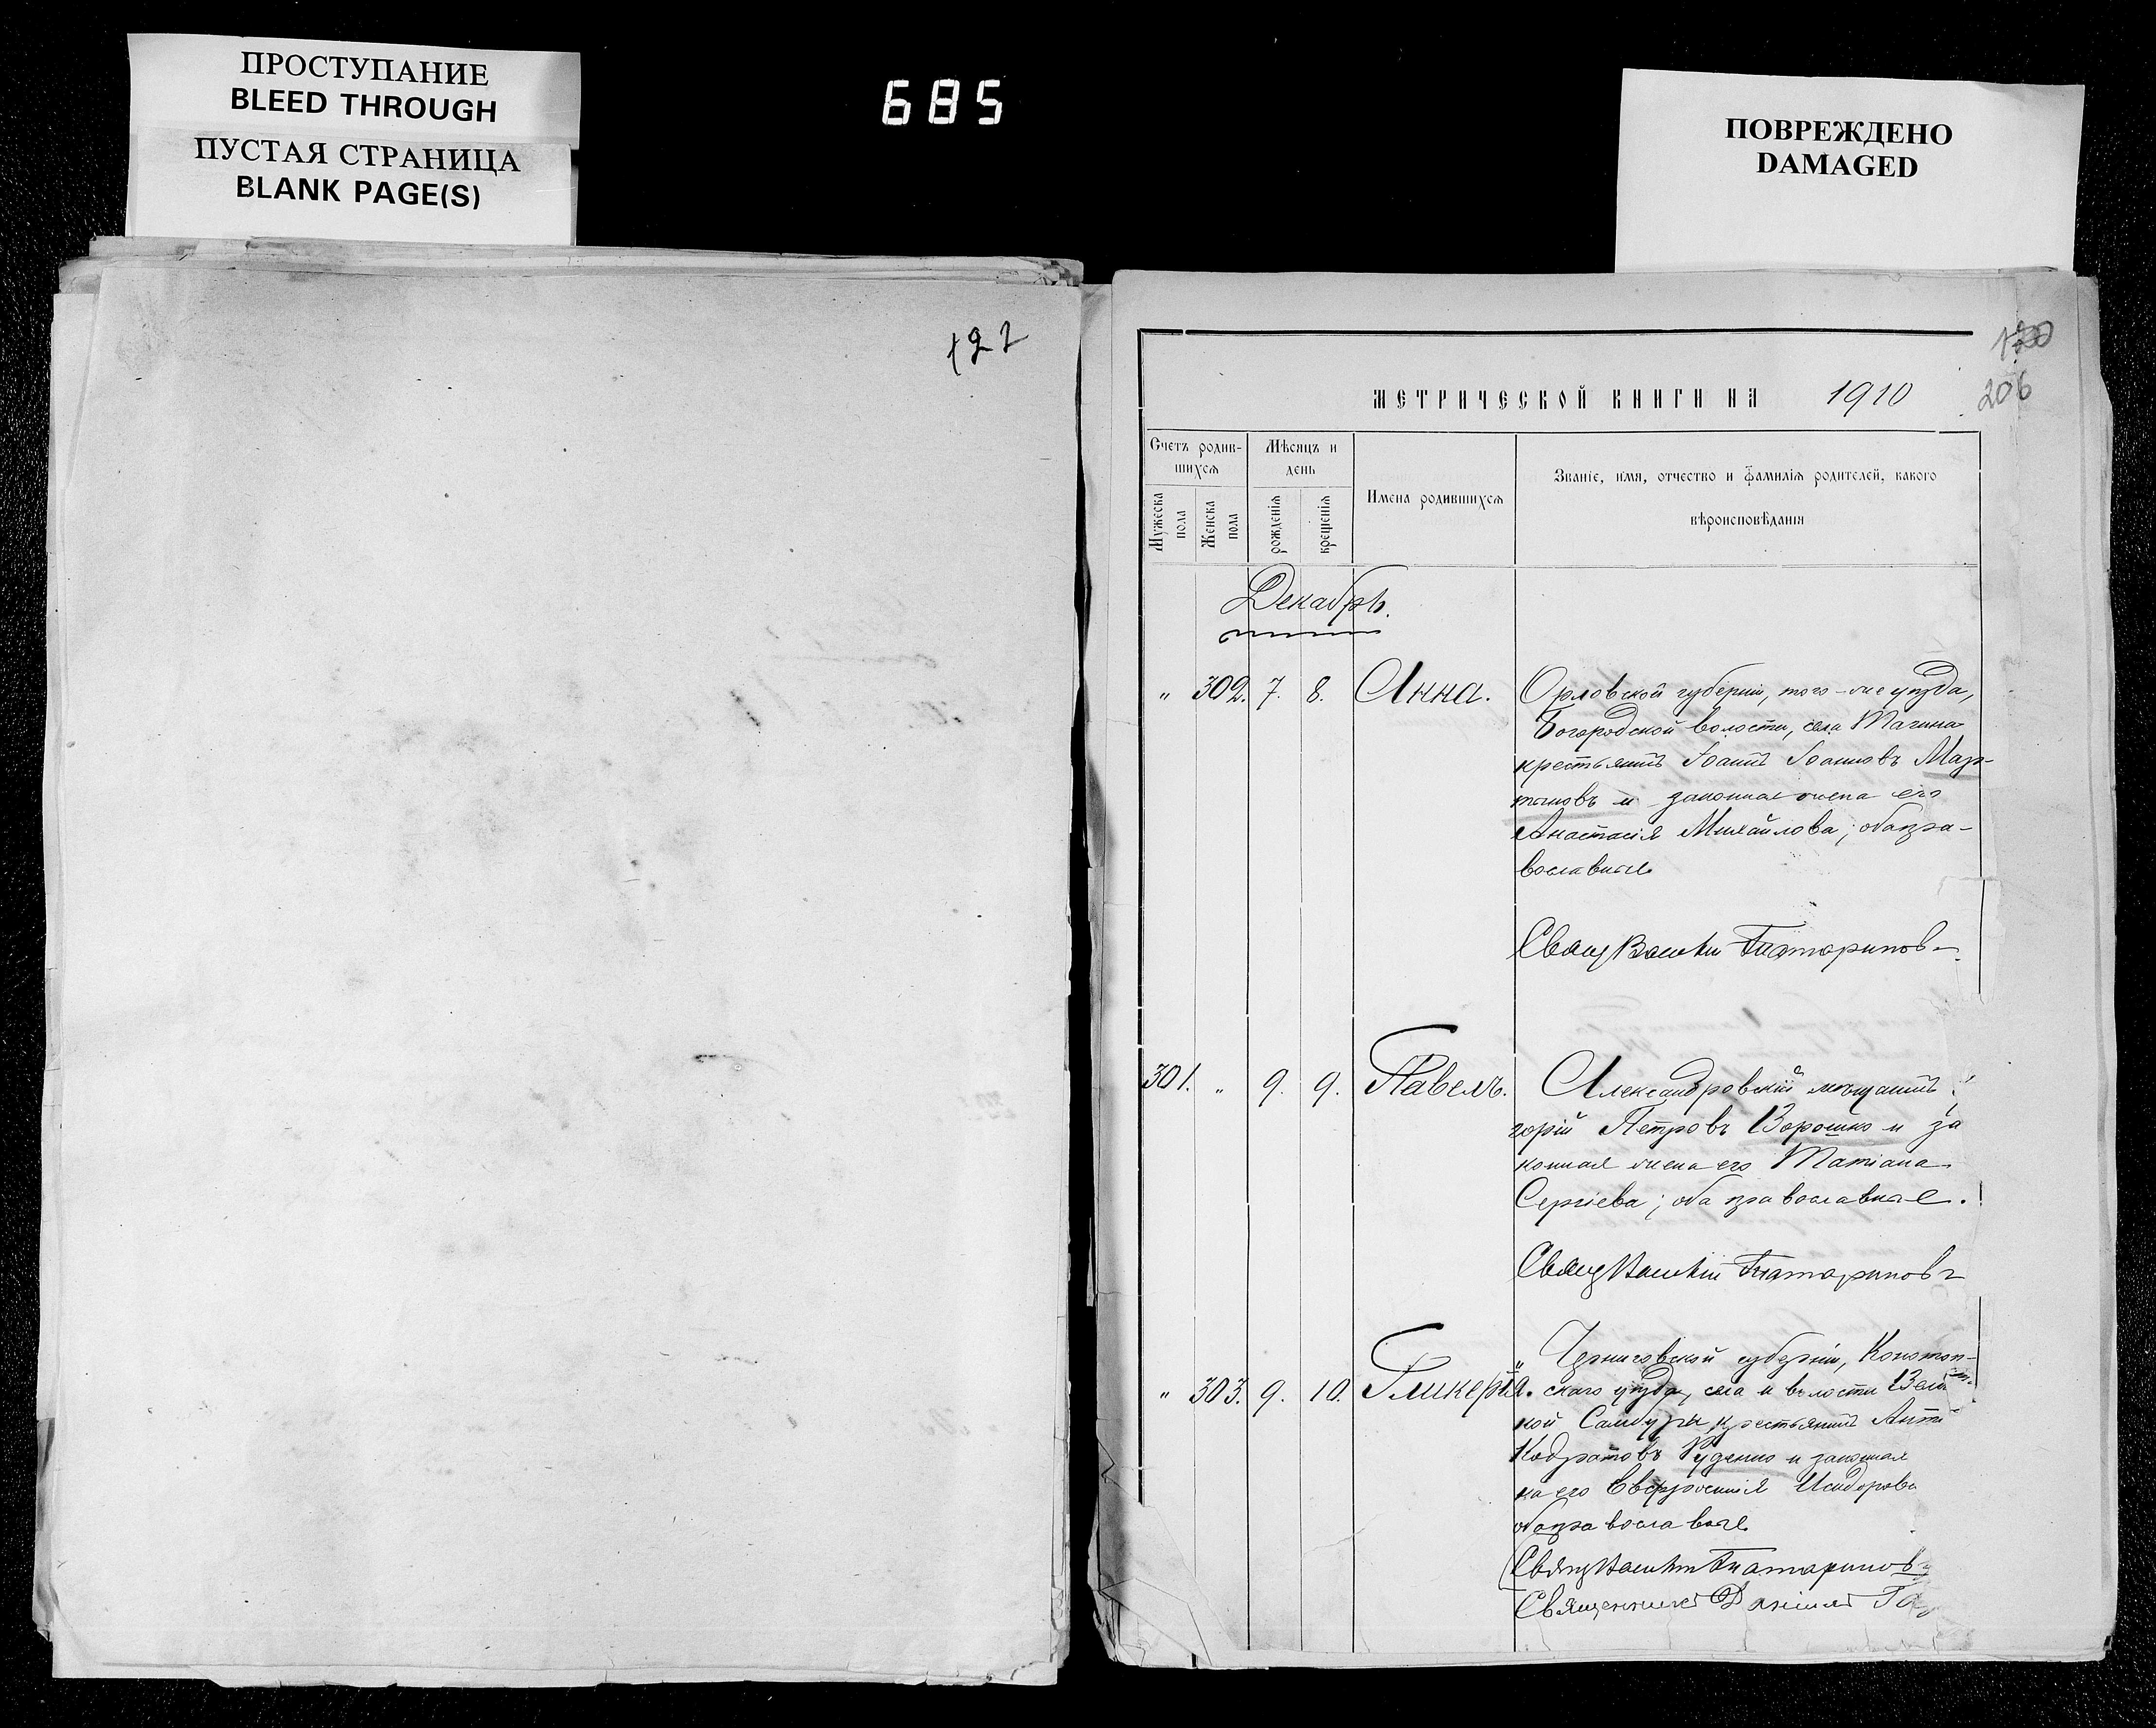 ПРОСТУПАНИЕ
BLEED THROUGH
ПУСТАЯ СТРАНИЦА
BLANK PAGE(S)
685
ПОВРЕЖДЕНО
DAMAGED
122
206
МЕТРИЧЕСКОЙ КНИГИ НА 1910
Счетъ родив-
шихся
Мѣсяцъ и
день
Имена родившихся
Званіе, имя, отчество и фамилія родителей, какого
вѣроисповѣданія
Мужеска
пола
Женска
пола
рожденія
крещенія
Декабрь.
„ 302. 7. 8. Анна. Орловской губерніи, того-же уѣзда,
Богородской волости, села
крестьянинъ Іоаннъ Іоанновъ Мар-
тыновъ и законная жена его
Анастасія Михайлова; оба пра-
вославные
Свящ Василій Татариновъ
301. „ 9. 9. Павелъ. Александровскій мѣщанинъ
горій Петровъ Ворошко и за
конная жена его Татіана
Сергіева; оба православные.
Свящ Василій Татариновъ
„ 303. 9. 10. Гликерія. Черниговской губерніи, Конотоп-
скаго уѣзда, села и волости
кой Самбуры, крестьянинъ
Кодратовъ Руденко и законная
на его Евфросинія Исидорова
оба православные
Свящ Василій Татариновъ
Священникъ Даніилъ